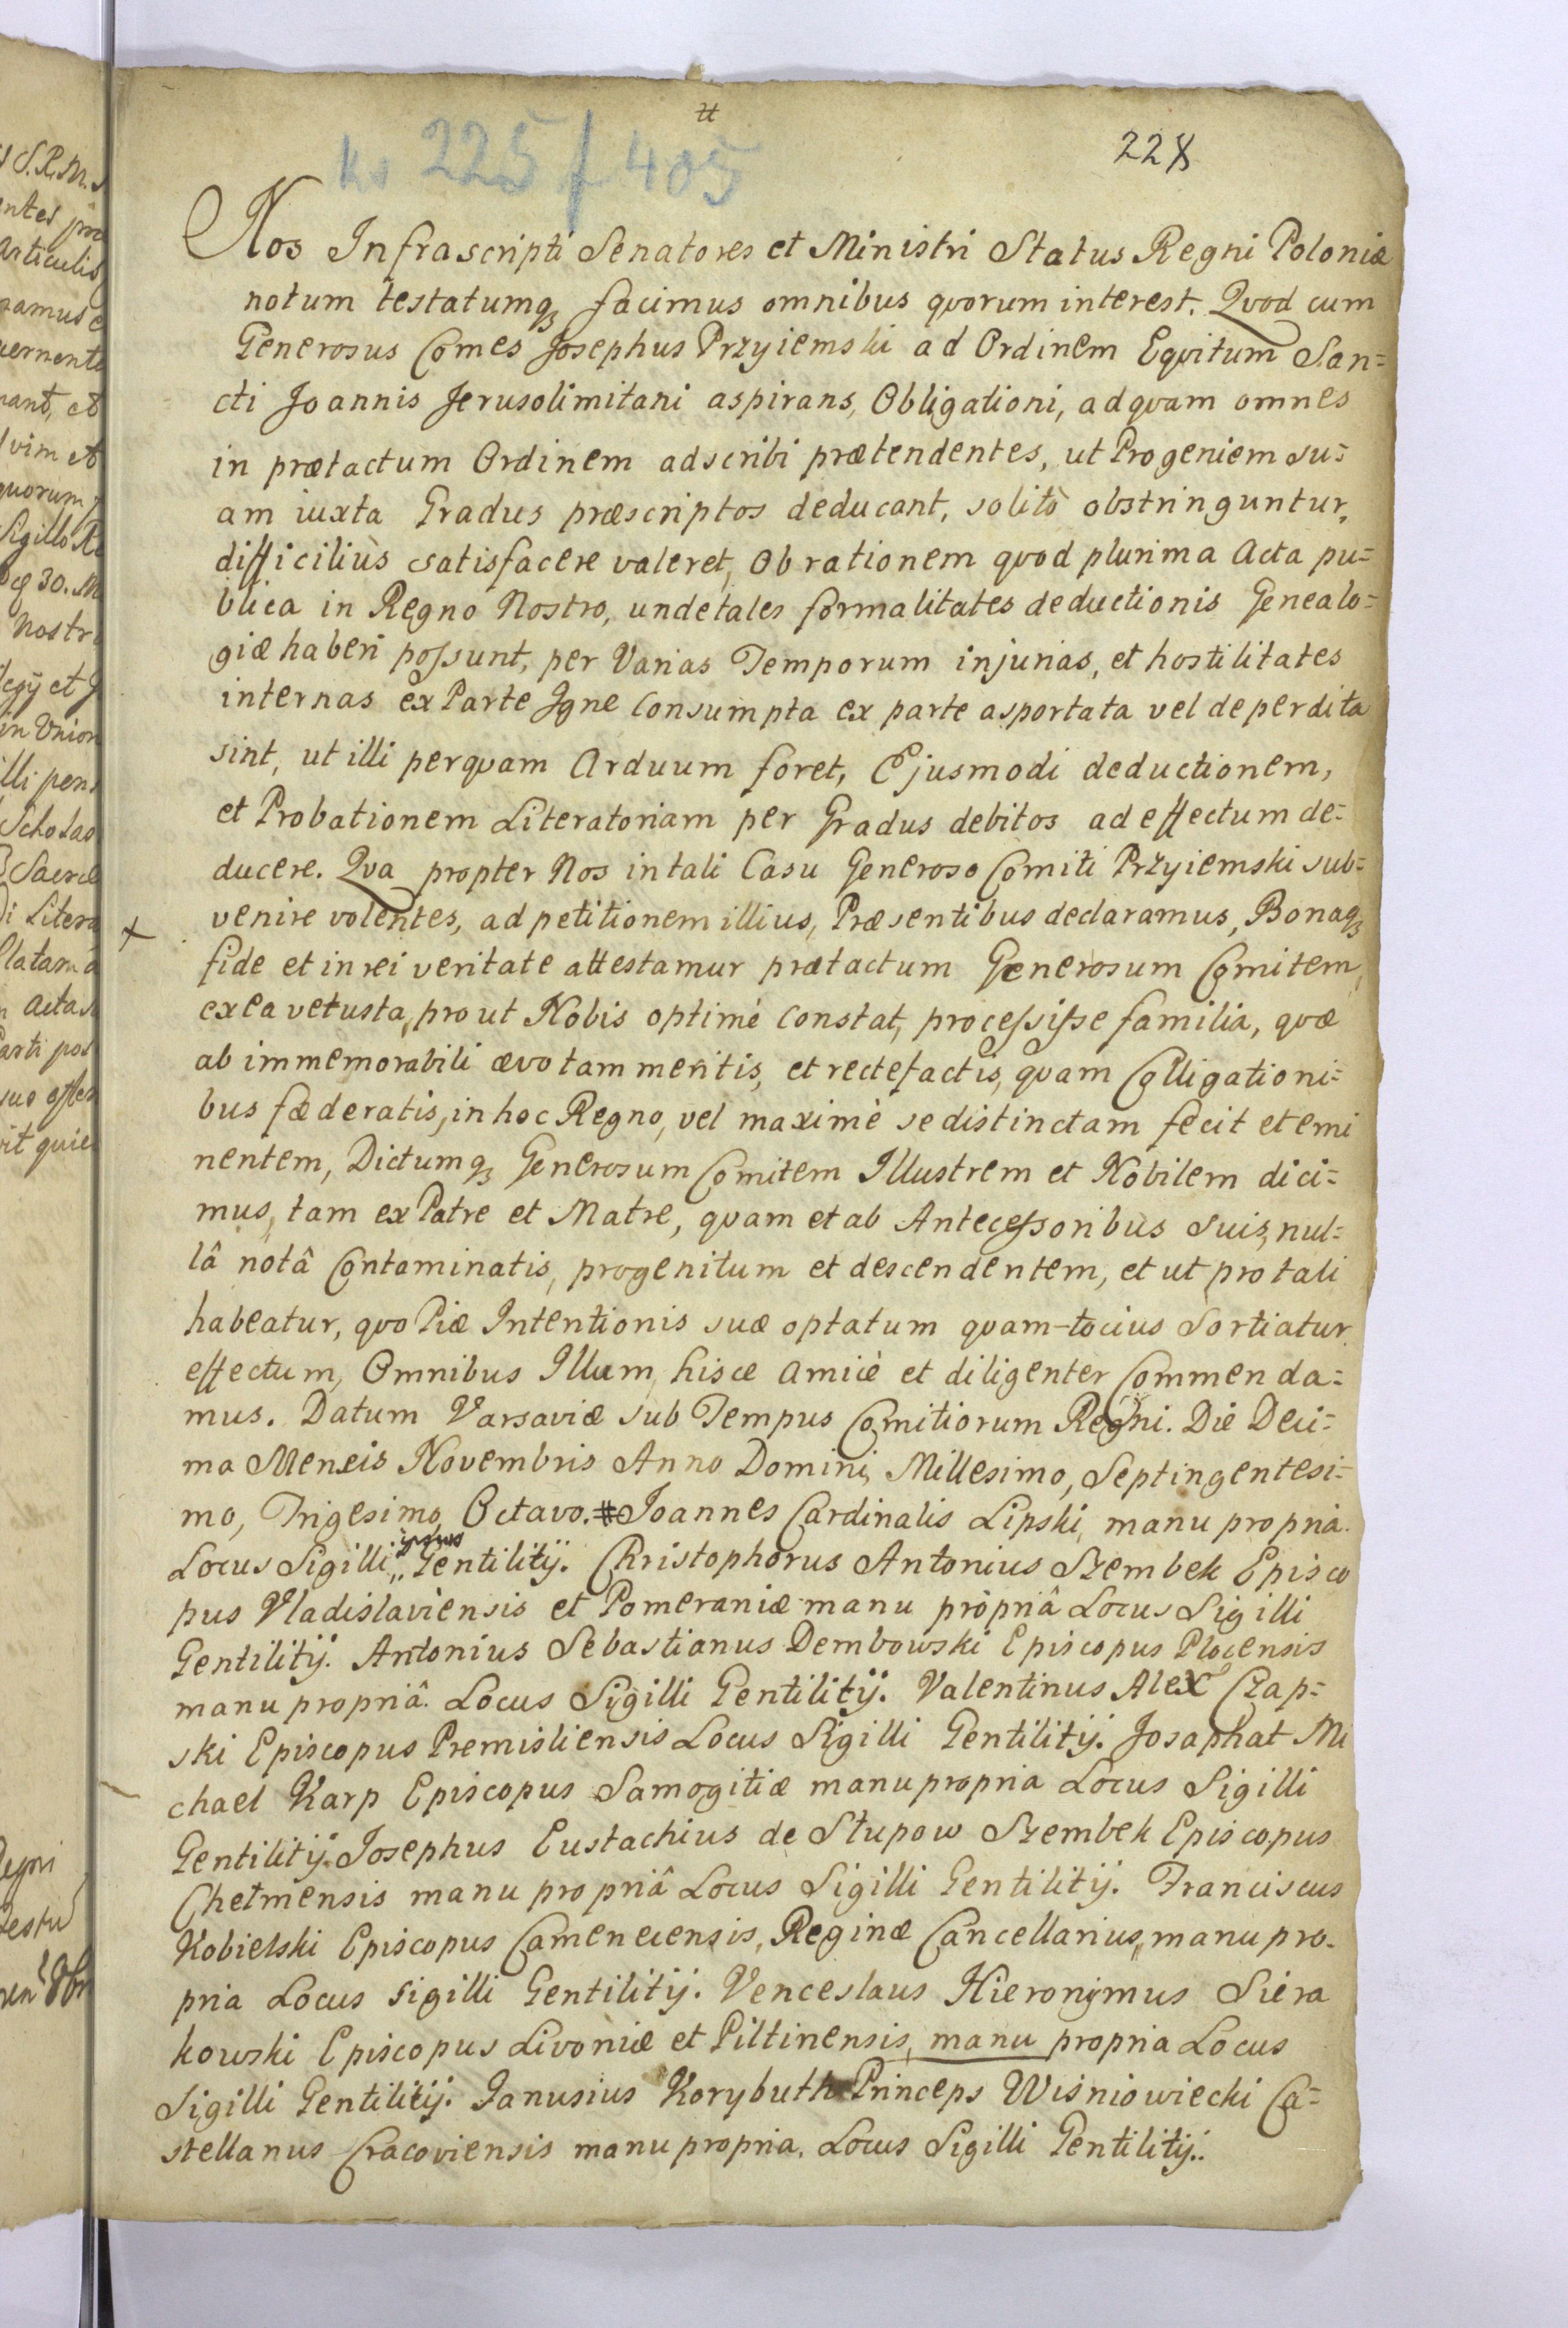 #
Ks 225 / 405
228
Nos Infrascripti Senatores et Ministri Status Regni Poloniæ
notum testatumqꝫ facimus omnibus quorum interest. Quod cum
Generosus Comes Josephus Przyiemski ad Ordinem Equitum San=
cti Joannis Jerusolimitani aspirans, Obligationi, ad quam omnes
in prætactum Ordinem adscribi prætendentes, ut Progeniem su=
am iuxta Gradus præscriptos deducant, solitò obstringuntur,
difficiliùs satisfacere valeret, Ob rationem quod plurima Acta pu=
blica in Regno Nostro, unde tales formalitates deductionis Genealo=
giæ haberi possunt, per Varias Temporum injurias, et hostilitates
internas ex Parte Igne Consumpta ex parte asportata vel deperdita
sint, ut illi perquam Arduum foret, Ejusmodi deductionem,
et Probationem Literatoriam per Gradus debitos ad effectum de=
ducere. Qua propter Nos in tali Casu Generoso Comiti Przyiemski sub=
venire volentes, ad petitionem illius, Præsentibus declaramus, Bonaqꝫ
fide et in rei veritate attestamur prætactum Generosum Comitem,
ex ea vetusta, prout Nobis optimè Constat, processisse familia, quæ
ab immemorabili ævo tam meritis, et rectefactis, quam Colligationi=
bus fæderatis, in hoc Regno, vel maximè se distinctam fecit et emi
nentem, Dictumqꝫ Generosum Comitem Illustrem et Nobilem dici=
mus, tam ex Patre et Matre, quam et ab Antecessoribus Suis, nul=
lâ notâ Contaminatis, progenitum et descendentem, et ut pro tali
habeatur, quo Piæ Intentionis suæ optatum quam-tocius Sortiatur
effectum, Omnibus Illum, hisce Amicè et diligenter Commenda=
mus. Datum Varsaviæ sub Tempus Comitiorum Regni. Die Deci=
ma Mensis Novembris Anno Domini, Millesimo, Septingentesi=
mo, Trigesimo, Octavo. # Joannes Cardinalis Lipski, manu propria.
Locus Sigilli ipsius Gentilitij. Christophorus Antonius Szembek Episco
pus Vladislaviensis et Pomeraniæ manu propriâ Locus Sigilli
Gentilitij. Antonius Sebastianus Dembowski Episcopus Plocensis
manu propriâ. Locus Sigilli Gentilitij. Valentinus Alex Czap=
ski Episcopus Premisliensis Locus Sigilli Gentilitij. Josaphat Mi
chael Karp Episcopus Samogitiæ manu propria Locus Sigilli
Gentilitij. Josephus Eustachius de Słupow Szembek Episcopus
Chełmensis manu propriâ Locus Sigilli Gentilitij. Franciscus
Kobielski Episcopus Camenecensis, Reginæ Cancellarius, manu pro.
pria Locus sigilli Gentilitij. Venceslaus Hieronijmus Siera
kowski Episcopus Livoniæ et Piltinensis, manu propria Locus
Sigilli Gentilitij. Janusius Korybuth Princeps Wiśniowiecki Ca=
stellanus Cracoviensis manu propria. Locus Sigilli Gentilitij.